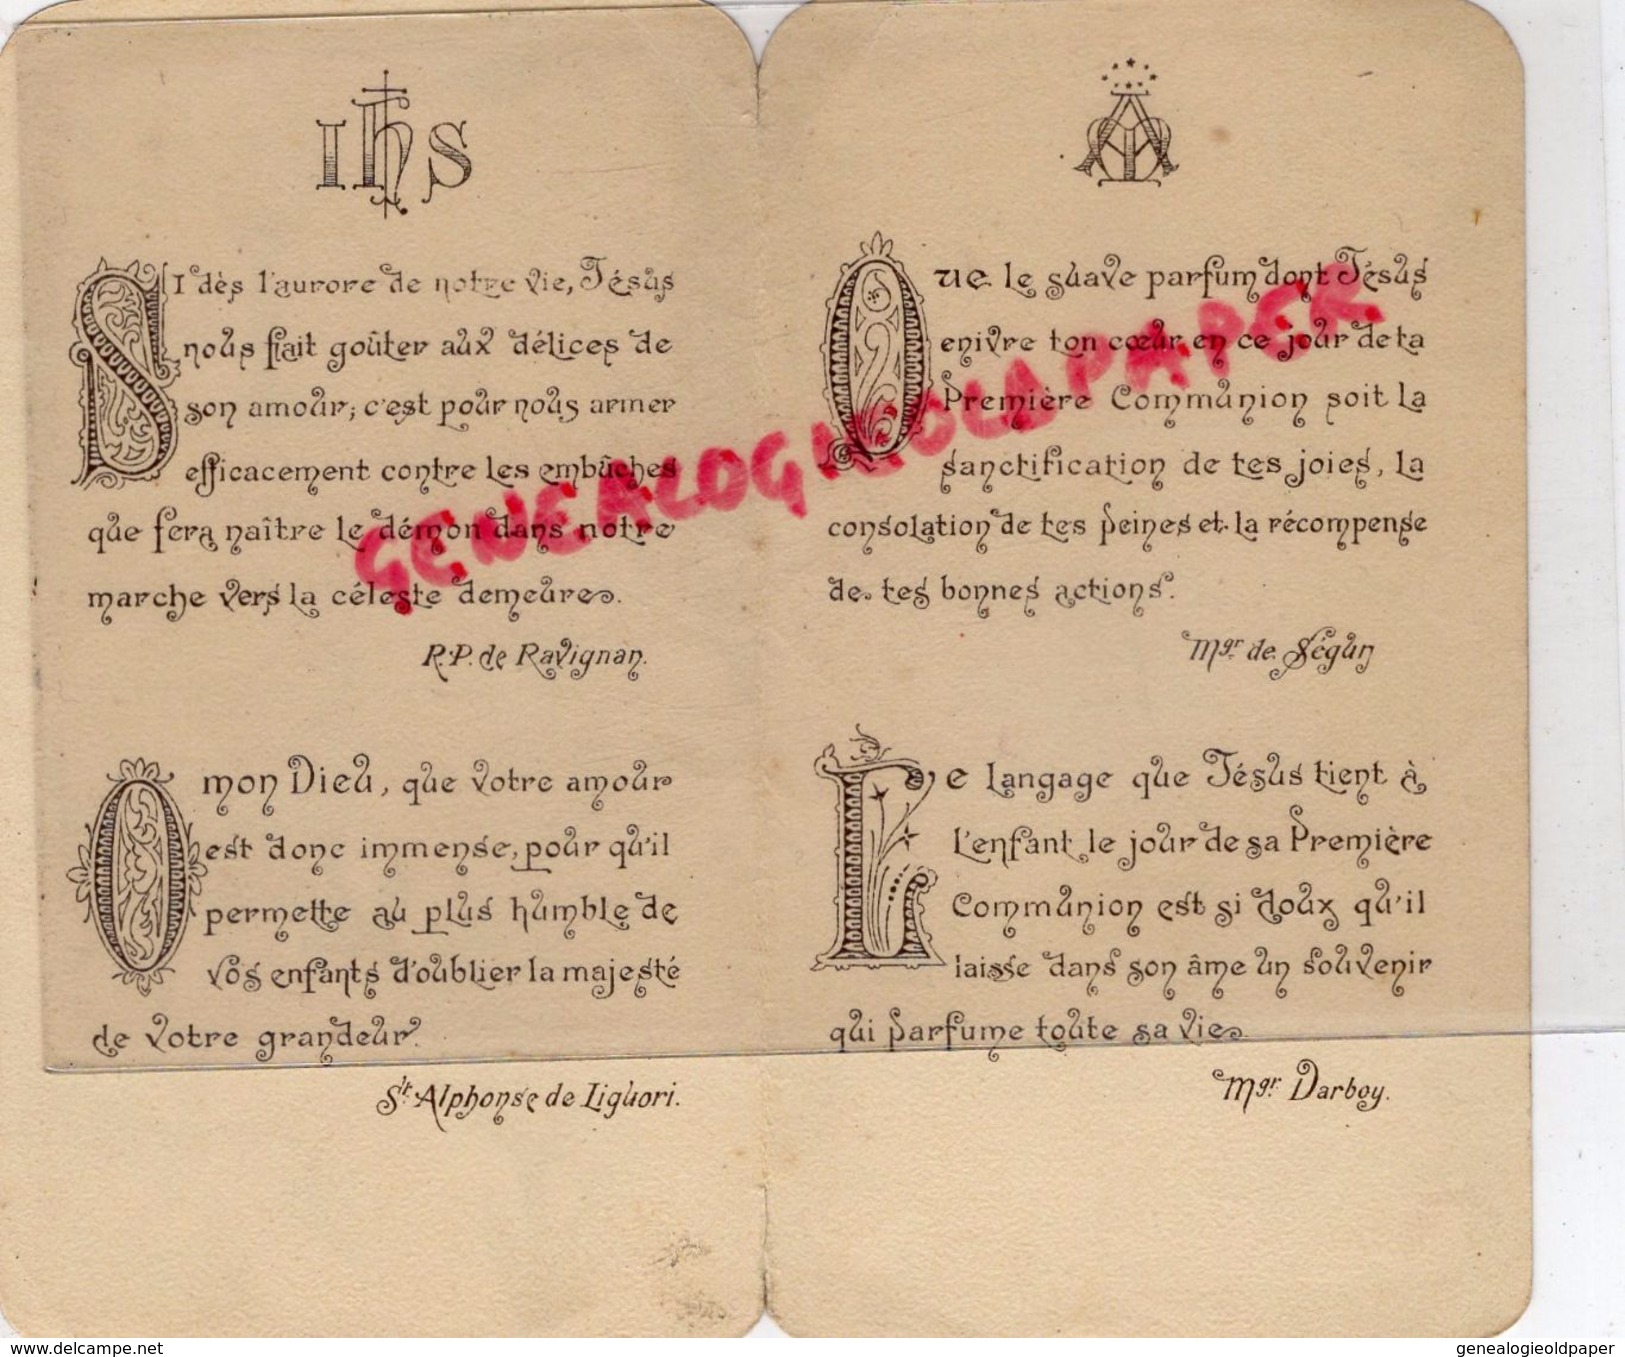 IHS
SI dès l'aurore de notre vie, Jésus
nous fait goûter aux délices de
son amour; c'est pour nous armer
efficacement contre les embûches
que fera naître le démon dans notre
marche vers la céleste demeure.
R.P. de Ravignan.
O mon Dieu, que votre amour
est donc immense, pour qu'il
permette au plus humble de
vos enfants d'oublier la majesté
de votre grandeur.
St. Alphonse de Liguori.
AM
Que le suave parfum dont Jésus
enivre ton cœur en ce jour de ta
Première Communion soit la
sanctification de tes joies, la
consolation de tes peines et la récompense
de tes bonnes actions.
Mgr. de Ségur
Le langage que Jésus tient à
l'enfant le jour de sa Première
Communion est si doux qu'il
laisse dans son âme un souvenir
qui parfume toute sa vie
Mgr. Darboy.
GENEALOGIEOLDPAPER
www.delcampe.net
genealogieoldpaper